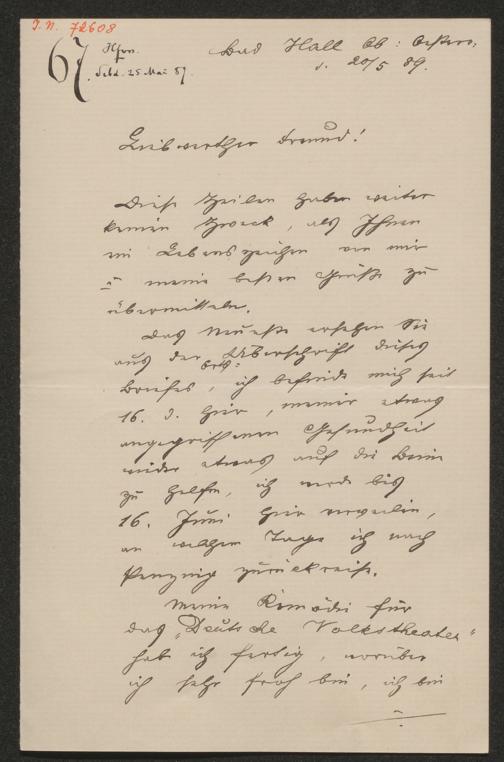 I. N. 72608
67
Hfrn.
Bad Hall Ob: Oesterr:
d. 20/5 89.
Liebwerther Freund!
Diese Zeilen haben weiter
keinen Zweck, als Ihnen
ein Lebenszeichen von mir
u meine besten Grüße zu
übermitteln.
Das Neueste ersehen Sie
aus der Überschrift dieses
Briefes, ich befinde mich seit
16. d. hier, meiner etwas
angegriffenen Gesundheit
wieder etwas auf die Beine
zu helfen, ich werde bis
16. Juni hier verweilen,
an welchem Tage ich nach
Penzing zurückreise.
Meine Komödie für
das „Deutsche Volkstheater"
habe ich fertig, worüber
ich sehr froh bin, ich bin